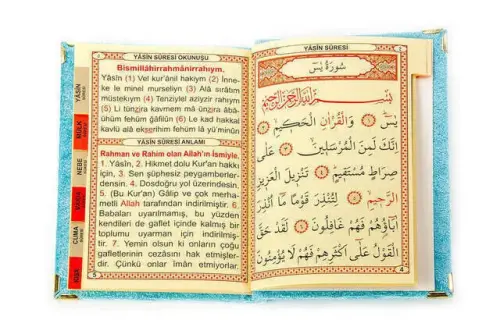 YÂSİN SÛRESİ OKUNUŞU
Bismillâhirrahmânirrahıym.
Yâsîn (1) Vel kur'ânil hakiym (2) İnne-
ke le minel murseliyn (3) Alâ sırâtim
müstekıym (4) Tenziylel aziyzir rahıym
(5) Li tünzira kavmem mâ ünzira âbâ-
ühüm fehüm ğâfilûn (6) Le kad hakkal
kavlü alâ ekserihim fehüm lâ yü'minûn
YÂSİN SÛRESİ ANLAMI
Rahman ve Rahim olan Allah'ın İsmiyle.
1. Yâsîn, 2. Hikmet dolu Kur'an hakkı
için, 3. Sen şüphesiz peygamberler-
densin. 4. Dosdoğru yol üzerindesin.
5. (Bu Kur'an) Gâlip ve çok merha-
metli Allah tarafından indirilmiştir. 6.
Babaları uyarılmamış, bu yüzden
kendileri de gaflet içinde kalmış bir
toplumu uyarman için indirilmiş-
tir. 7. Yemin olsun ki onların çoğu
gafletlerinin cezasını hak etmişler-
dir. Çünkü onlar iman etmiyorlar.
5
YÂSİN
MÜLK
NEBE
CUMA
YÂSİN SÛRESİ
سُورَةُ يٰسٓ
بِسْمِ اللّٰهِ الرَّحْمٰنِ الرَّحِيمِ
يٰسٓ ﴿١﴾ وَالْقُرْاٰنِ الْحَكِيمِ ﴿٢﴾
اِنَّكَ لَمِنَ الْمُرْسَلِينَ ﴿٣﴾ عَلٰى
صِرَاطٍ مُسْتَقِيمٍ ﴿٤﴾ تَنْزِيلَ الْعَزِيزِ
الرَّحِيمِ ﴿٥﴾ لِتُنْذِرَ قَوْمًا مَٓا اُنْذِرَ
اٰبَٓاؤُ۬هُمْ فَهُمْ غَافِلُونَ ﴿٦﴾ لَقَدْ حَقَّ
الْقَوْلُ عَلٰٓى اَكْثَرِهِمْ فَهُمْ لَا يُؤْمِنُونَ
4